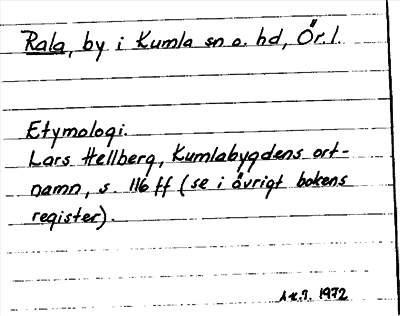 Rala, by i Kumla sn o. hd, Ör. l.
Etymologi.
Lars Hellberg, Kumlabygdens ort-
namn, s. 116 ff (se i övrigt bokens
register).
1972